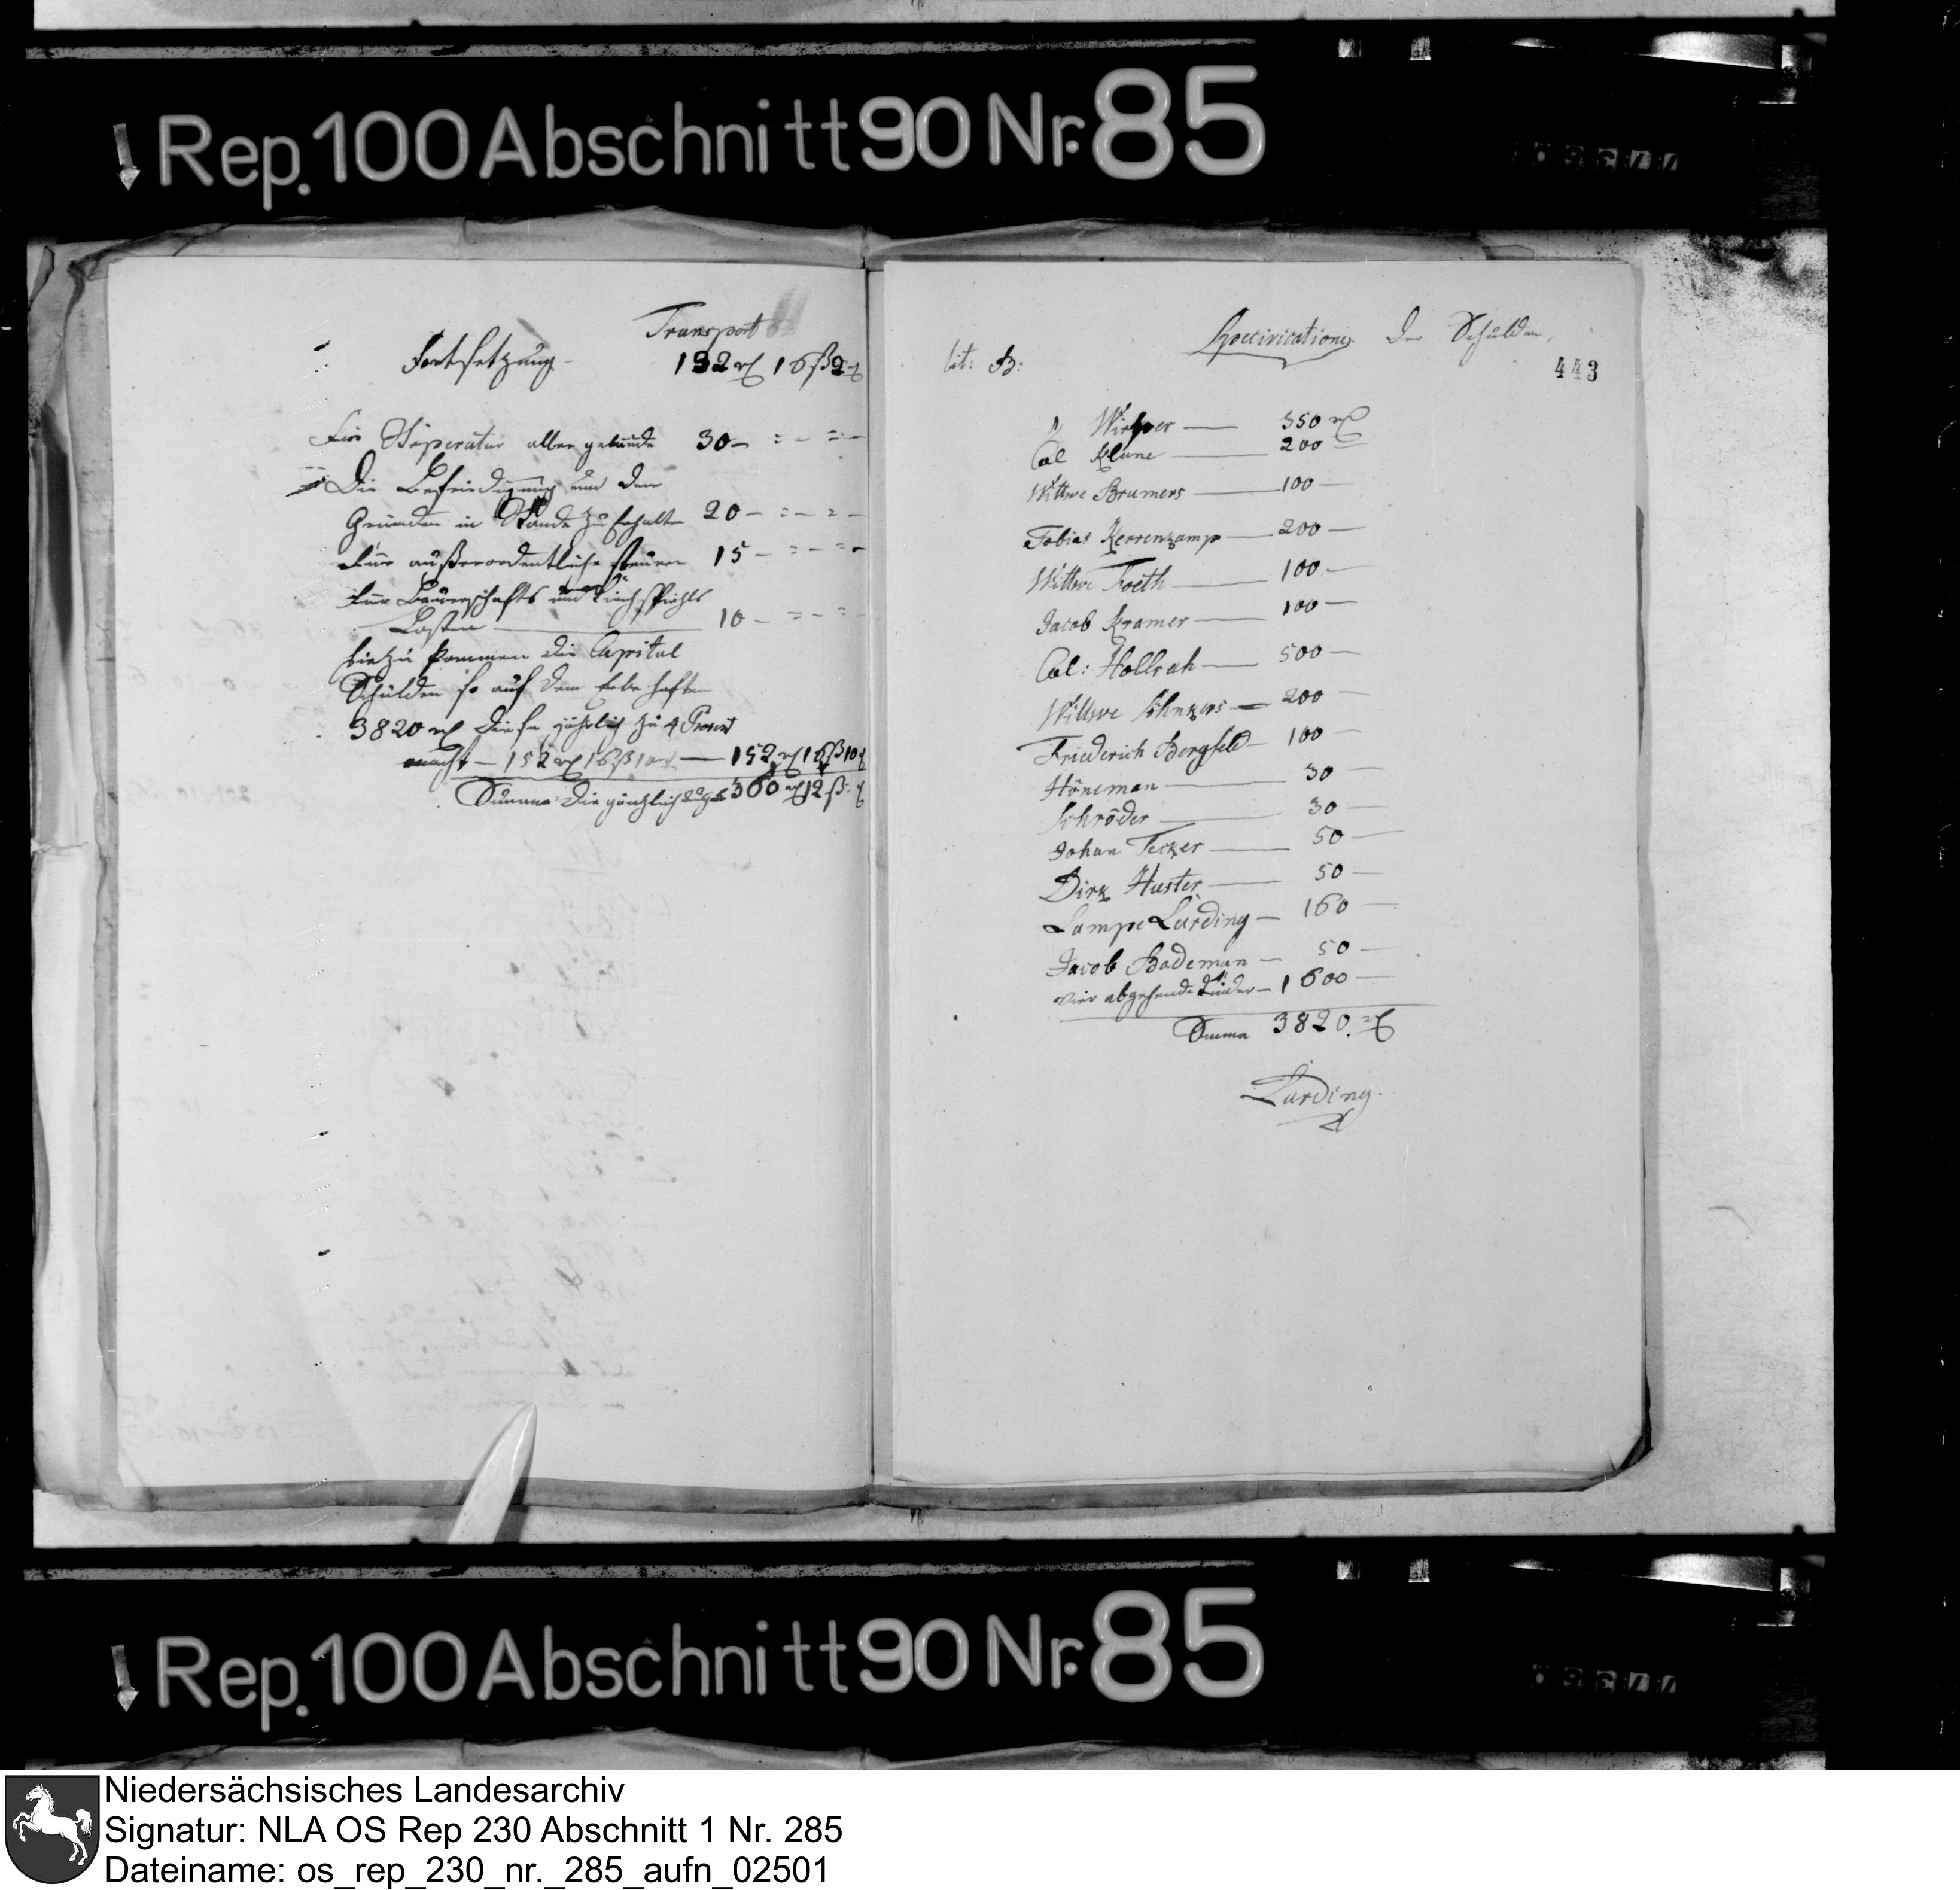 Rep. 100 Abschnitt 90 Nr. 85
Transport
Fortsetzung 132 rt 16 ß 2 d
Für Reperatur aller gebäude 30 – = – = –
Die Befriedigung um den
Gründen in Stande zu erhalten 20 – = – = –
Für außerordentliche steuren 15 – = – = –
Für Bauerschafts und Kirchspiehls
Lasten 10 – = – = –
hiezu kommen die Capital
Schulden so auf dem Erbe haften
3820 rt diese jährlich zu 4 Procent
macht – 152 rt 16 ß 10 d — 152 rt 16 ß 10 d
Summa die gänzliche 360 rt 12 ß
Specivication der Schulden,
Lit: B:
443
Wirper — 350 rt
Col Klune — 200
Wittwe Brumers — 100 –
Tobias Kerrenkamp — 200 –
Wittwe Foeth — 100 –
Jacob Kramer — 100 –
Col: Hollrah — 500 –
Wittwe Söhnkers — 200 –
Friederich Bergfeld – 100 –
Höneman — 30 –
Schröder — 30 –
Johan Fecker — 50 –
Dirk Huster — 50 –
Lampe Lürding – 160 –
Jacob Bademan – 50 –
vier abgehende Kinder – 1600 –
Summa 3820 rt
Lürding
Rep. 100 Abschnitt 90 Nr. 85
Niedersächsisches Landesarchiv
Signatur: NLA OS Rep 230 Abschnitt 1 Nr. 285
Dateiname: os_rep_230_nr._285_aufn_02501